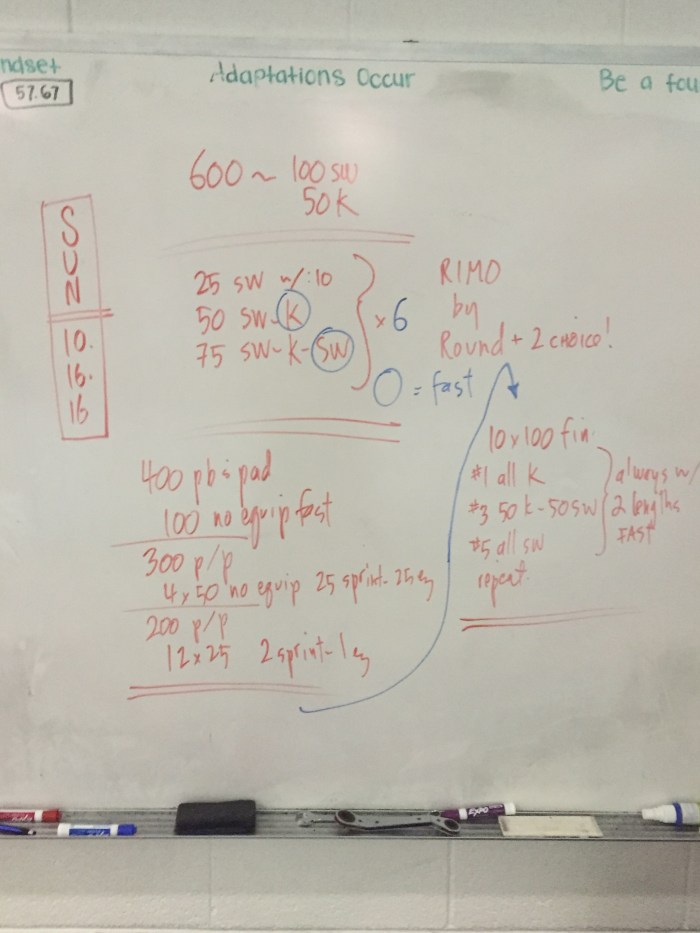 ndset
57.67
Adaptations Occur
Be a fou
600 ~ 100 SW
50 K
S
U
N
10.
16.
16
25 SW w/:10
50 SW-K
75 SW-K-SW
x 6
= fast
RIMO
by
Round + 2 CHOICE!
400 pb & pad
100 no equip fast
300 P/P
4 x 50 no equip 25 sprint-25 ez
200 P/P
12 x 25 2 sprint-1 ez
10 x 100 fin.
#1 all K
#3 50 K-50 SW
#5 all SW
repeat.
always w/
2 lengths
FAST